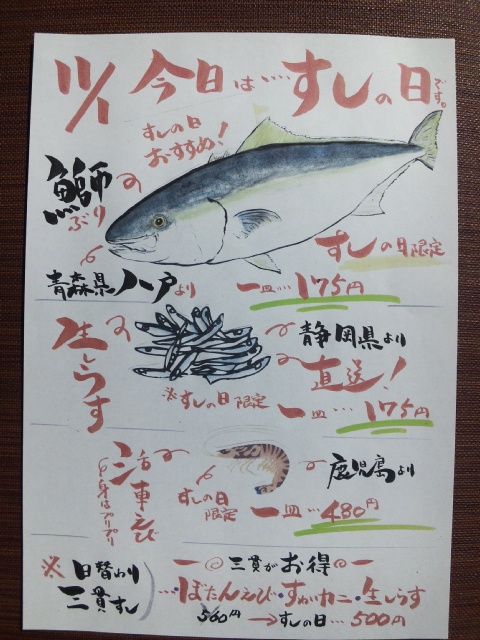 11/1 今日は・・・・すしの日です。
すしの日
おすすめ!
鰤
ぶり
すしの日限定
青森県八戸より 一皿・・・175円
生しらす
静岡県より
直送!
※すしの日限定
一皿・・・175円
活車えび
身はプリプリ
鹿児島より
すしの日
限定
一皿・・・480円
※日替わり
三貫すし
三貫がお得
・・・ぼたんえび・すがいカニ・生しらす
560円→すしの日・・・500円